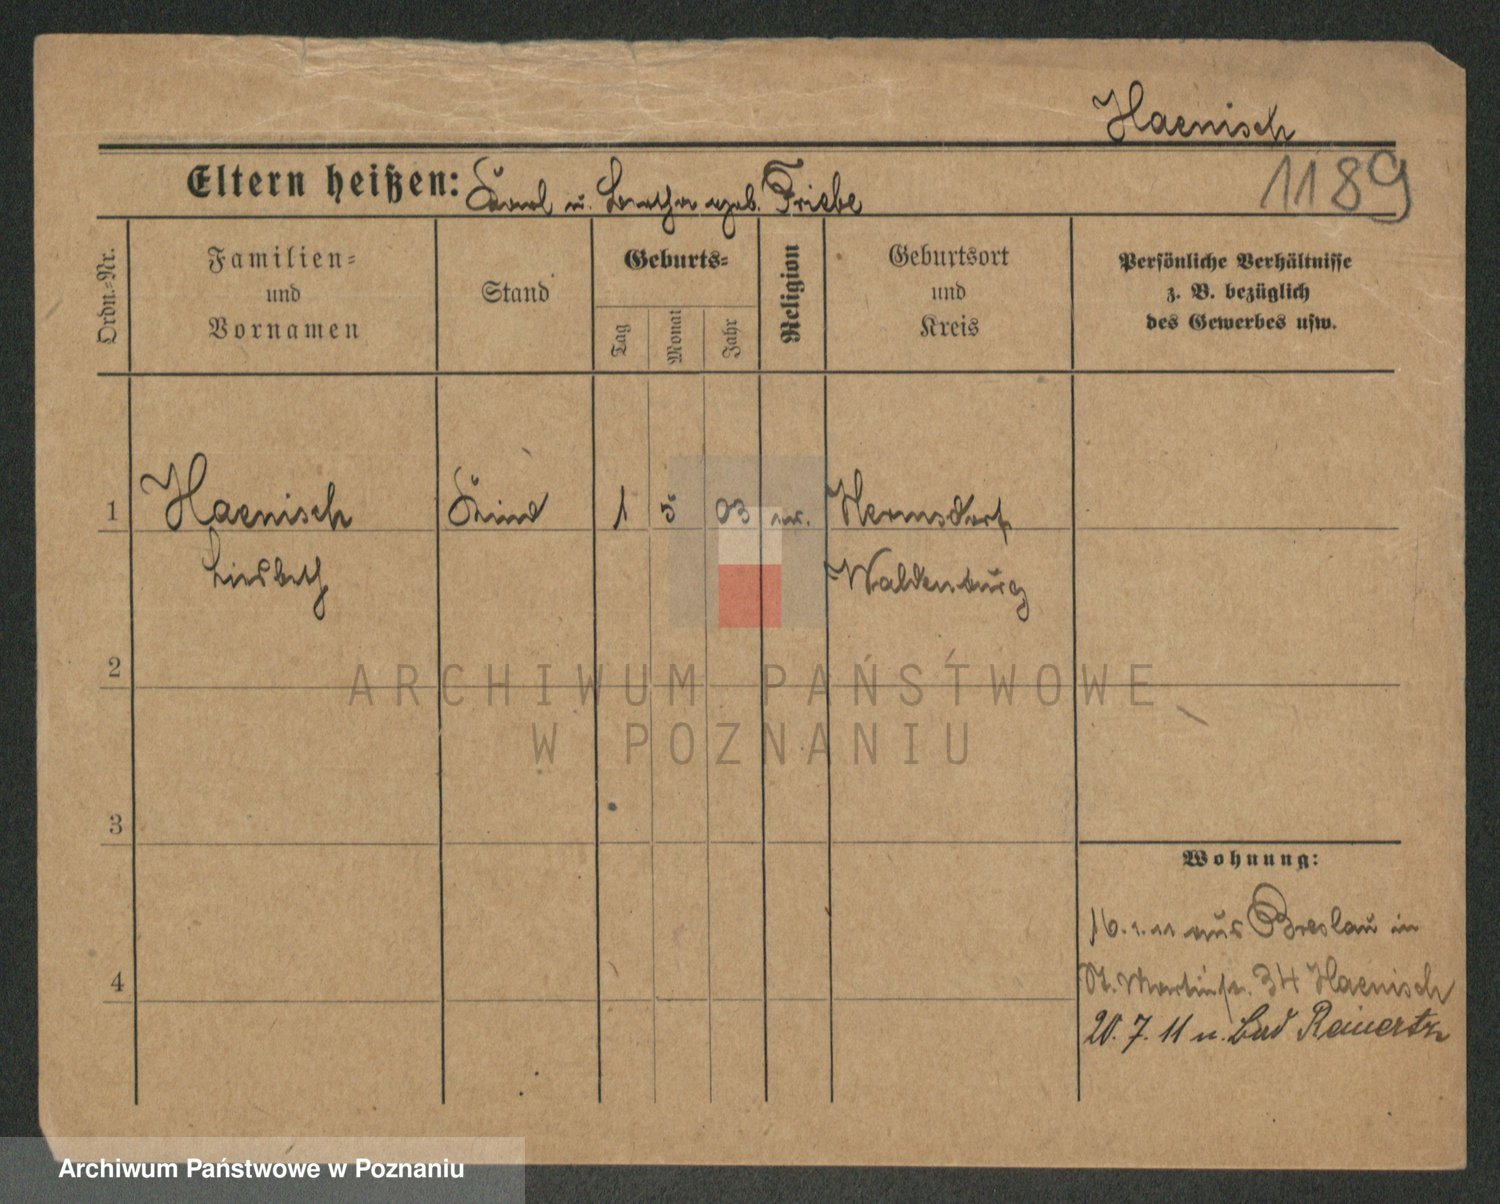 Haenisch
1189
Eltern heißen: Karl u. Bertha geb. Friebe
Ordn.-Nr.
Familien-
und
Vornamen
Stand
Geburts-
Tag
Monat
Jahr
Religion
Geburtsort
und
Kreis
Persönliche Verhältnisse
z. B. bezüglich
des Gewerbes usw.
1 Haenisch Kind 1 5 03 ev. Hermsdorf
Liesbeth Waldenburg
2
ARCHIWUM PAŃSTWOWE
W POZNANIU
3
Wohnung:
16. 1. 11 aus Breslau in
St. Martinstr. 34 Haenisch
4
20. 7. 11 n. Bad Reinertz
Archiwum Państwowe w Poznaniu